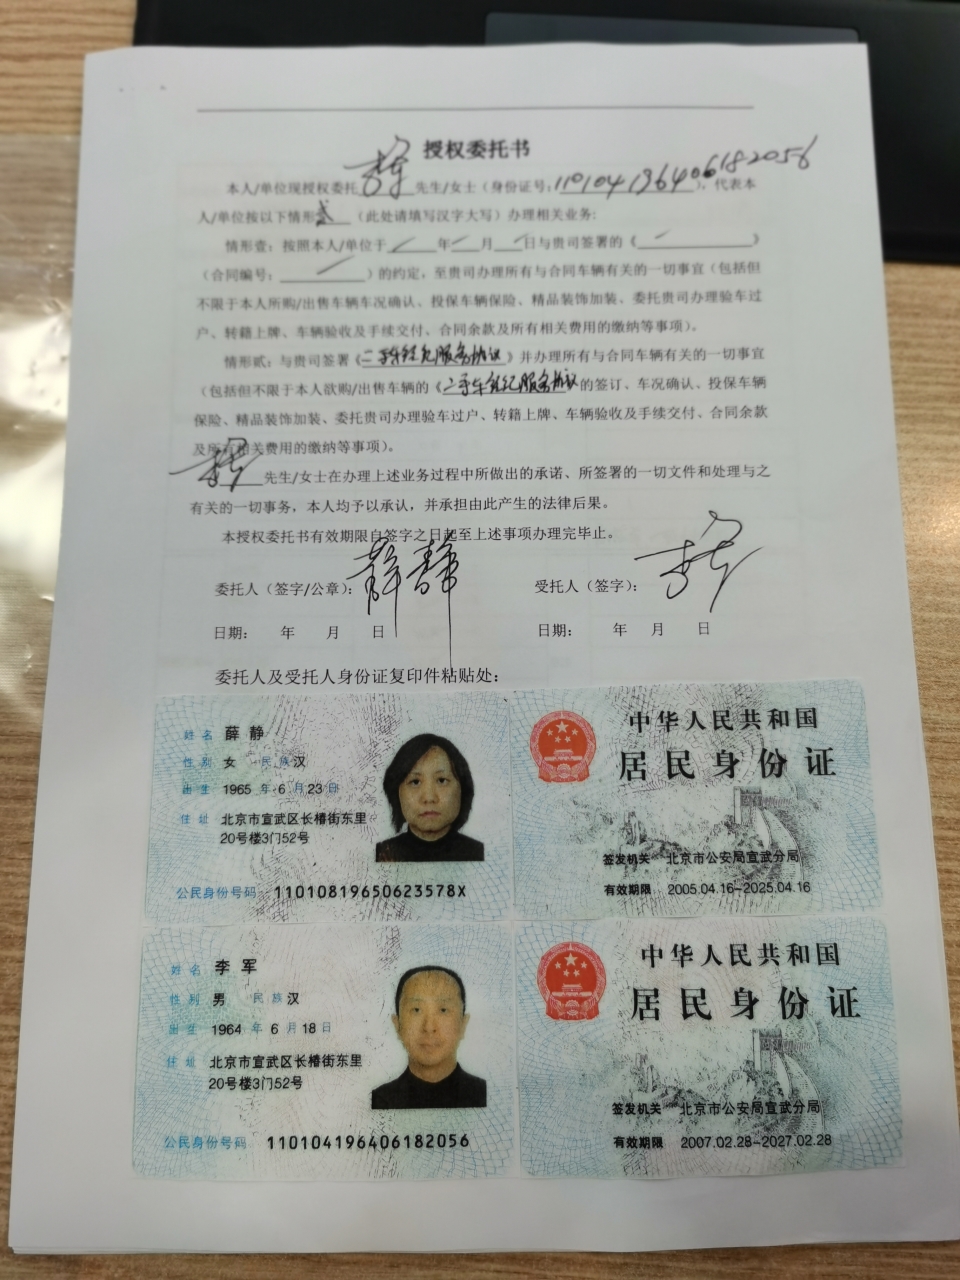 授权委托书
本人/单位现授权委托李军先生/女士（身份证号：110104196406182056），代表本
人/单位按以下情形贰（此处请填写汉字大写）办理相关业务：
情形壹：按照本人/单位于 年 月 日与贵司签署的《 》
（合同编号： ）的约定，至贵司办理所有与合同车辆有关的一切事宜（包括但
不限于本人所购/出售车辆车况确认、投保车辆保险、精品装饰加装、委托贵司办理验车过
户、转籍上牌、车辆验收及手续交付、合同余款及所有相关费用的缴纳等事项）。
情形贰：与贵司签署《二手车经纪服务协议》并办理所有与合同车辆有关的一切事宜
（包括但不限于本人欲购/出售车辆的《二手车经纪服务协议的签订、车况确认、投保车辆
保险、精品装饰加装、委托贵司办理验车过户、转籍上牌、车辆验收及手续交付、合同余款
及所有相关费用的缴纳等事项）。
李军先生/女士在办理上述业务过程中所做出的承诺、所签署的一切文件和处理与之
有关的一切事务，本人均予以承认，并承担由此产生的法律后果。
本授权委托书有效期限自签字之日起至上述事项办理完毕止。
委托人（签字/公章）：薛静 受托人（签字）：李军
日期： 年 月 日 日期： 年 月 日
委托人及受托人身份证复印件粘贴处：
姓名 薛静
性别 女 民族 汉
出生 1965 年 6 月 23 日
住址 北京市宣武区长椿街东里
20号楼3门52号
公民身份号码 11010819650623578X
中华人民共和国
居民身份证
签发机关 北京市公安局宣武分局
有效期限 2005.04.16-2025.04.16
姓名 李军
性别 男 民族 汉
出生 1964 年 6 月 18 日
住址 北京市宣武区长椿街东里
20号楼3门52号
公民身份号码 110104196406182056
中华人民共和国
居民身份证
签发机关 北京市公安局宣武分局
有效期限 2007.02.28-2027.02.28